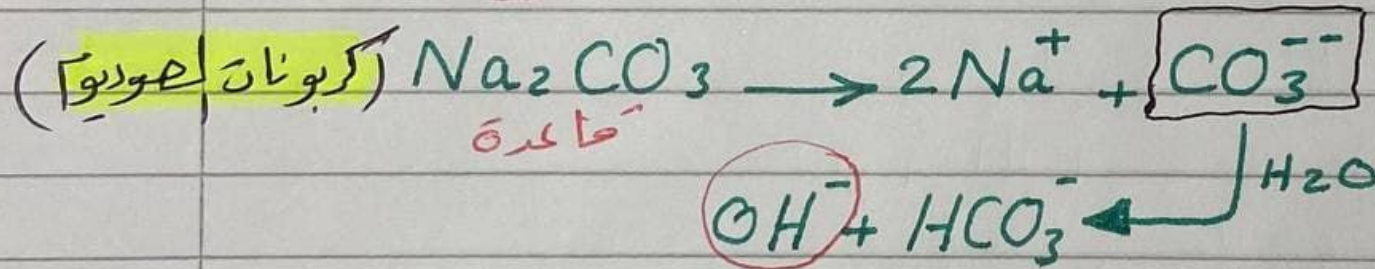 (كربونات الصوديوم) Na₂CO₃ → 2Na⁺ + CO₃⁻⁻
قاعدة
H₂O
OH⁻ + HCO₃⁻